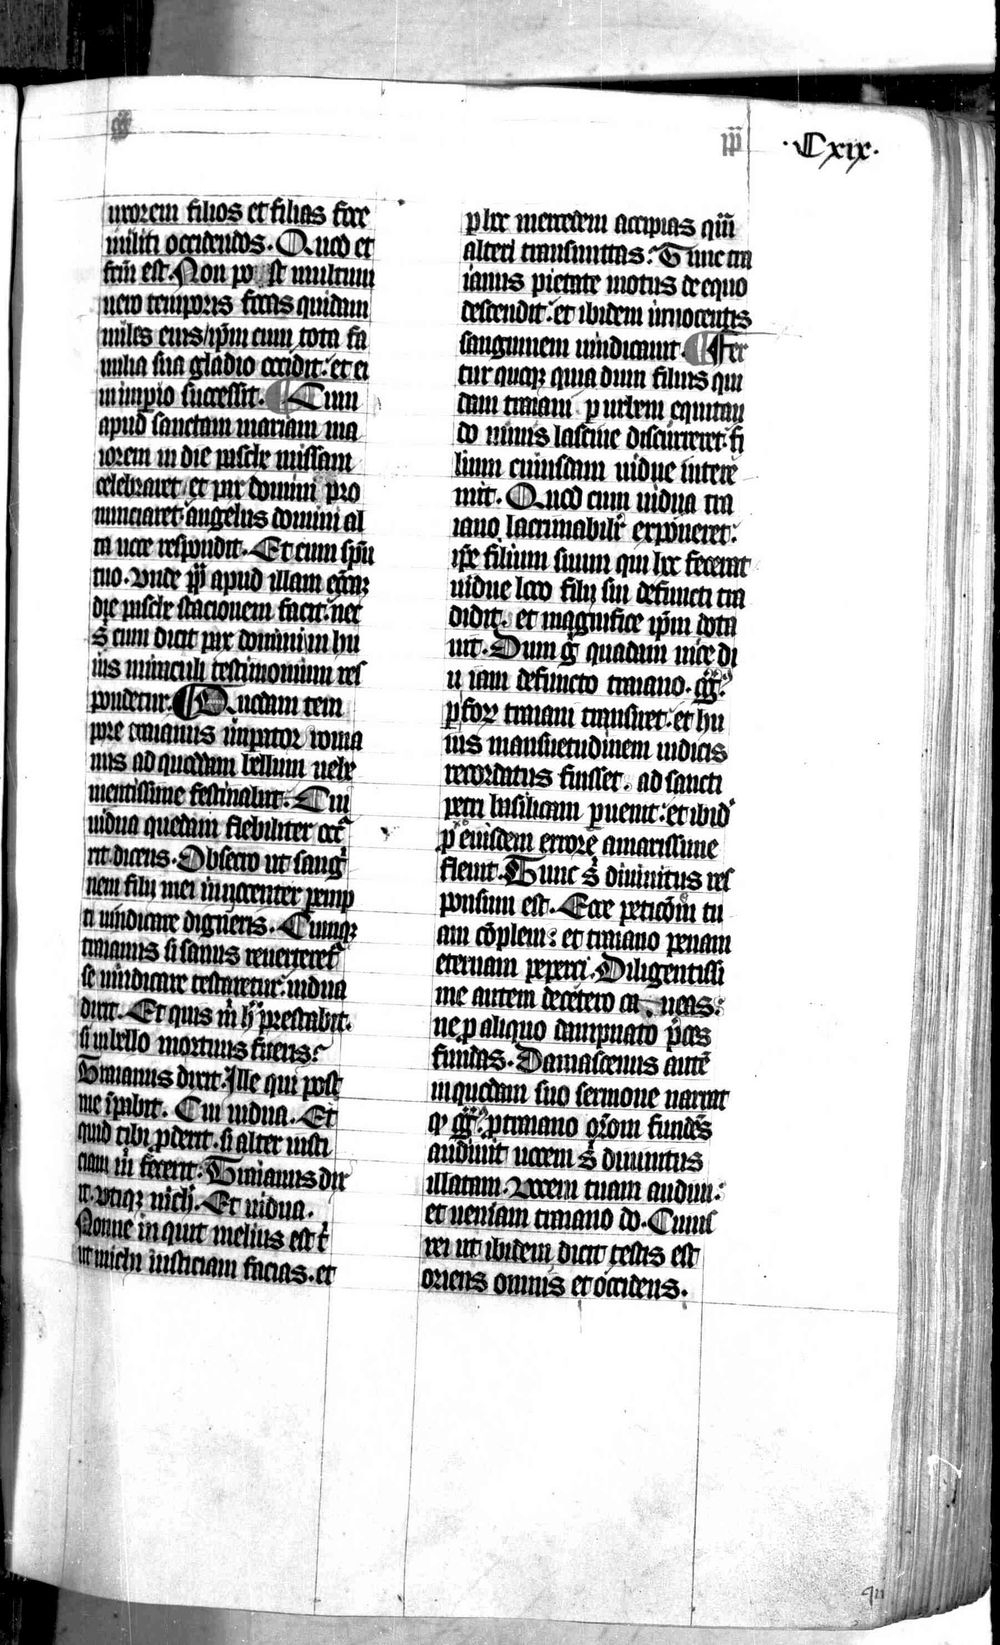 ·Cxix·
uxorem filios et filias fore
militi occidendos. Quod et
fc̄m est. Non post multum
uero temporis focas quidam
miles eius ip̄m cum tota fa
milia sua gladio occidit: et ei
in imp̄io successit. Cum
apud sanctam mariam ma
iorem in die pasche missam
celebraret et pax domini pro
nunciaret: angelus domini al
ta uoce respondit. Et cum sp̄u
tuo. Unde pp̄ apud illam eccaꝫ
die pasche stacionem facit. nec
s̄ cum dicit pax domini in hu
ius miraculi testimonium res
pondetur. Quodam tem
pore traianus imp̄ator roma
nus ad quoddam bellum uehe
mentissime festinabat. Cui
uidua quedam flebiliter occr̄
rit dicens. Obsecro ut sanḡ
nem filii mei innocenter pemp
ti uindicare digneris. Cumqꝫ
traianus si sanus reuerteret̄
se uindicare testaretur: uidua
dixit. Et quis m̄ h̄ prestabit.
si in bello mortuus fueris?
Traianus dixit. Ille qui post
me īpabit. Cui uidua. Et
quid tibi ꝓderit. si alter iusti
ciam m̄ fecerit: Traianus dix
it. Utiqꝫ nich̄. Et uidua.
Nonne inquit melius est t̄
ut michi iusticiam facias. et
p̄ hoc mercedem accipias qua̅
alteri transmittas: Tunc tra
ianus pietate motus de equo
descendit: et ibidem innocentis
sanguinem uindicauit. Fer
tur quoqꝫ quia dum filius qui
dam traiani p̄ urbem equitan
do nimis lasciue discurreret. fi
lium cuiusdam uidue intere
mit. Quod cum uidua tra
iano lacrimabilit̄ exponeret:
ip̄e filium suum qui hoc fecerat
uidue loco filii sui defuncti tra
didit. et magnifice ip̄m dota
uit. Dum g̅ quadam uice di
u iam defuncto traiano. gg̅.
p̄ forꝫ traiani transiret: et hu
ius mansuetudinem iudicis
recordatus fuisset. ad sancti
petri basilicam puenit: et ibid̄
p̄ eiusdem errore amarissime
fleuit. Tunc s̄ diuinitus res
ponsum est. Ecce peticōm tu
am cōpleui: et traiano penam
eternam peperci. Diligentissi
me autem decetero caueas:
ne p̄ aliquo dampnato p̄ces
fundas. Damascenus autē
in quodam suo sermone narrat
qꝫ gg̅. p̄ traiano oꝛōm fundēs
audiuit uocem s̄ diuinitus
illatam. Uocem tuam audiui:
et ueniam traiano do. Cuius
rei ut ibidem dicit testis est
oriens omnis et occidens.